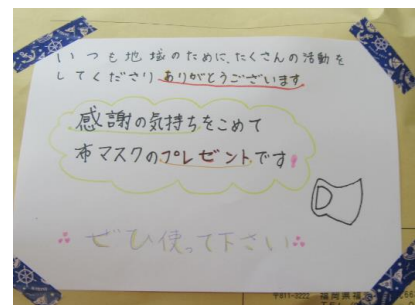 いつも地域のために、たくさんの活動を
してくださり ありがとうございます
感謝の気持ちをこめて
布マスクのプレゼントです!
ぜひ使って下さい
〒811-3222 福岡県福